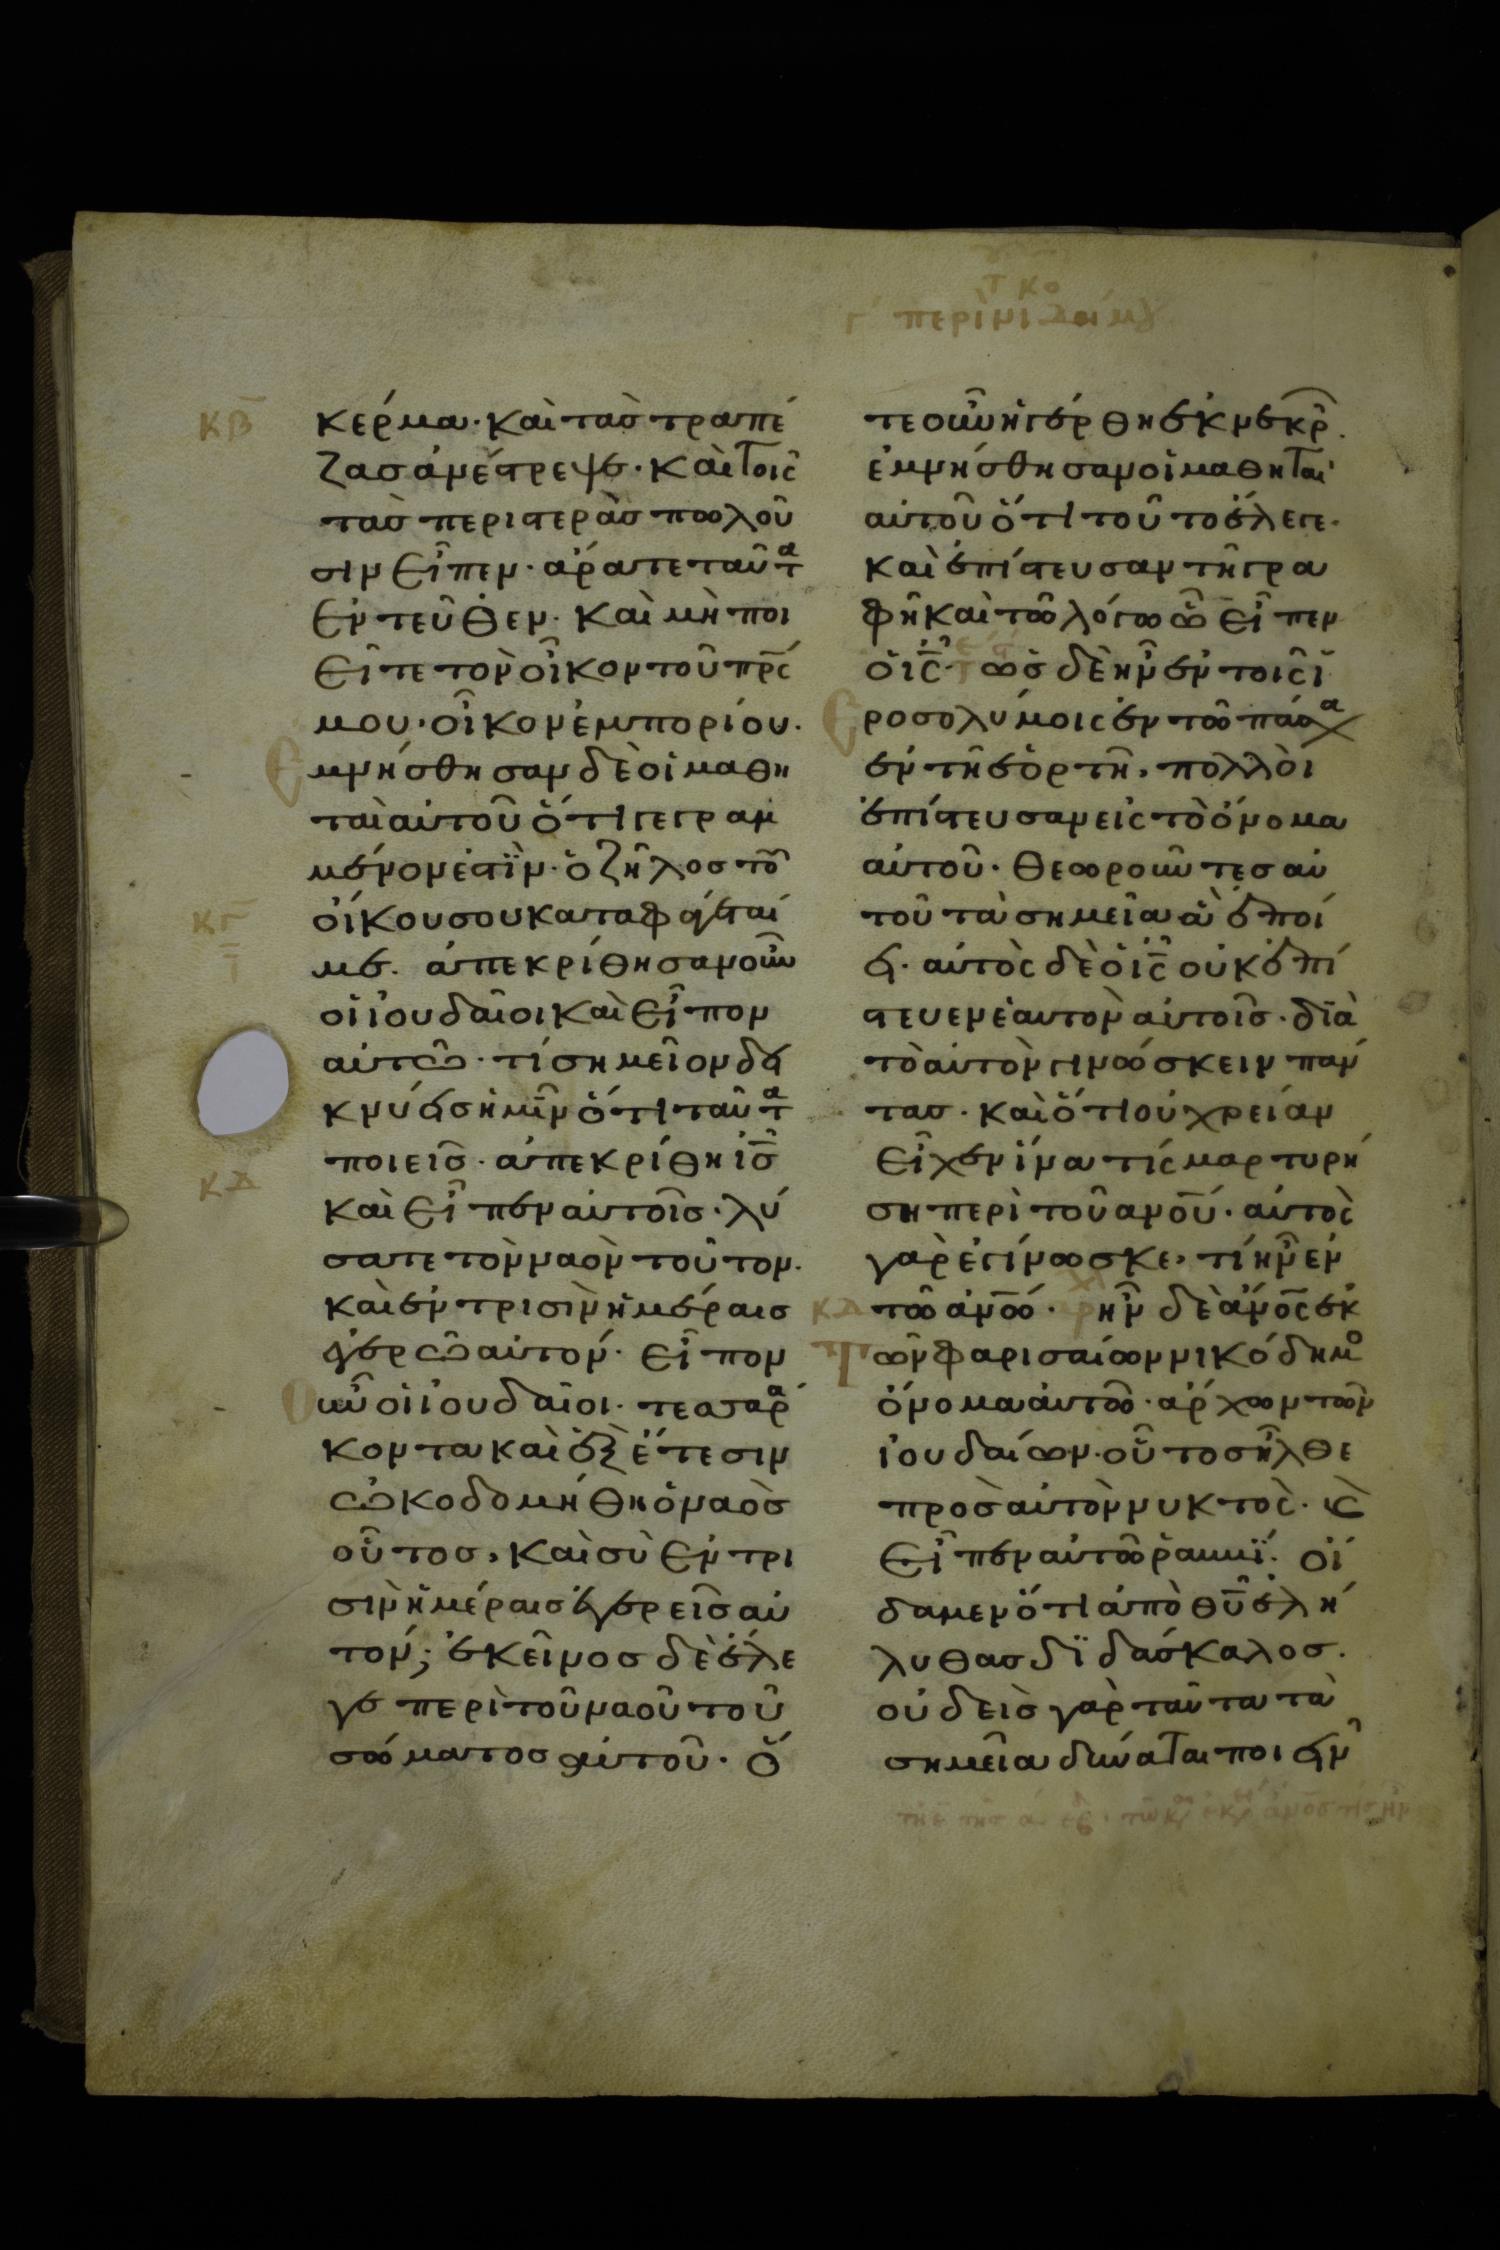 κβ
κερμα· και τὰσ τραπέ
ζασ ἀνέστρεψε· καὶ τοῖς
τὰσ περιστερὰσ πωλοῦ
σιν εἶπεν· ἄρατε ταῦτα
ἐντεῦθεν· καὶ μὴ ποι
εῖτε τὸν οἶκον τοῦ πρς
μου· οἶκον ἐμπορίου·
Ἐμνήσθησαν δὲ οἱ μαθη
ταὶ αὐτοῦ ὅτι γεγραμ
μένον ἐστὶν· ὁ ζῆλοσ τοῦ
κγ
οἴκου σου καταφάγεται
με· ἀπεκρίθησαν οὖν
οἱ ἰουδαῖοι καὶ εἶπον
αὐτῶ· τί σημεῖον δεί
κνύεισ ἡμῖν ὅτι ταῦτα
ποιεῖσ· ἀπεκρίθη ἰσ
κδ
καὶ εἶπεν αὐτοῖσ· λύ
σατε τὸν ναὸν τοῦτον·
καὶ ἐν τρισὶν ἡμέραισ
ἐγερῶ αὐτόν· εἶπον
Οὖν οἱ ἰουδαῖοι· τεσσαρά
κοντα καὶ ἓξ ἔτεσιν
ὠκοδομήθη ὁ ναὸσ
οὗτοσ, καὶ σὺ ἐν τρι
σὶν ἡμέραισ ἐγερεῖσ αὐ
τόν; ἐκεῖνοσ δὲ ἔλε
γε περὶ τοῦ ναοῦ τοῦ
σώματοσ αὐτοῦ· ὅ
τε οὖν ἠγέρθη ἐκ νεκρ·
ἐμνήσθησαν οἱ μαθηταὶ
αὐτοῦ ὅτι τοῦτο ἔλεγε·
καὶ ἐπίστευσαν τῆ γρα
φῆ καὶ τῶ λόγω ὧ εἶπεν
ὁ ις· ὡσ δὲ ἦν ἐν τοῖς ἱ
Εροσολύμοις ἐν τῶ πάσχα
ἐν τῆ ἑορτῆ, πολλοὶ
ἐπίστευσαν εἰς τὸ ὄνομα
αὐτοῦ· θεωροῦντεσ αὐ
τοῦ τὰ σημεῖα ἃ ἐποί
ει· αὐτὸς δὲ ὁ ις οὐκ ἐπί
στευεν ἑαυτὸν αὐτοῖσ· διὰ
τὸ αὐτὸν γινώσκειν πάν
τασ· καὶ ὅτι οὐ χρείαν
εἶχεν ἵνα τίς μαρτυρή
ση περὶ τοῦ ανου· αὐτὸς
γὰρ ἐγίνωσκε, τί ἦν ἐν
κδ τῶ ανω· ἦν δὲ ανος ἐκ
Τῶν φαρισαίων νικόδημο
ὄνομα αὐτῶ· ἄρχων τῶν
ἰουδαίων· οὗτοσ ἦλθε
πρὸσ αὐτὸν νυκτὸς· κὲ
εἶπεν αὐτῶ ῥαββί· οἴ
δαμεν ὅτι ἀπὸ θυ ἐλή
λυθασ διδάσκαλοσ·
οὐδεὶσ γὰρ ταῦτα τὰ
σημεῖα δύναται ποιεῖν